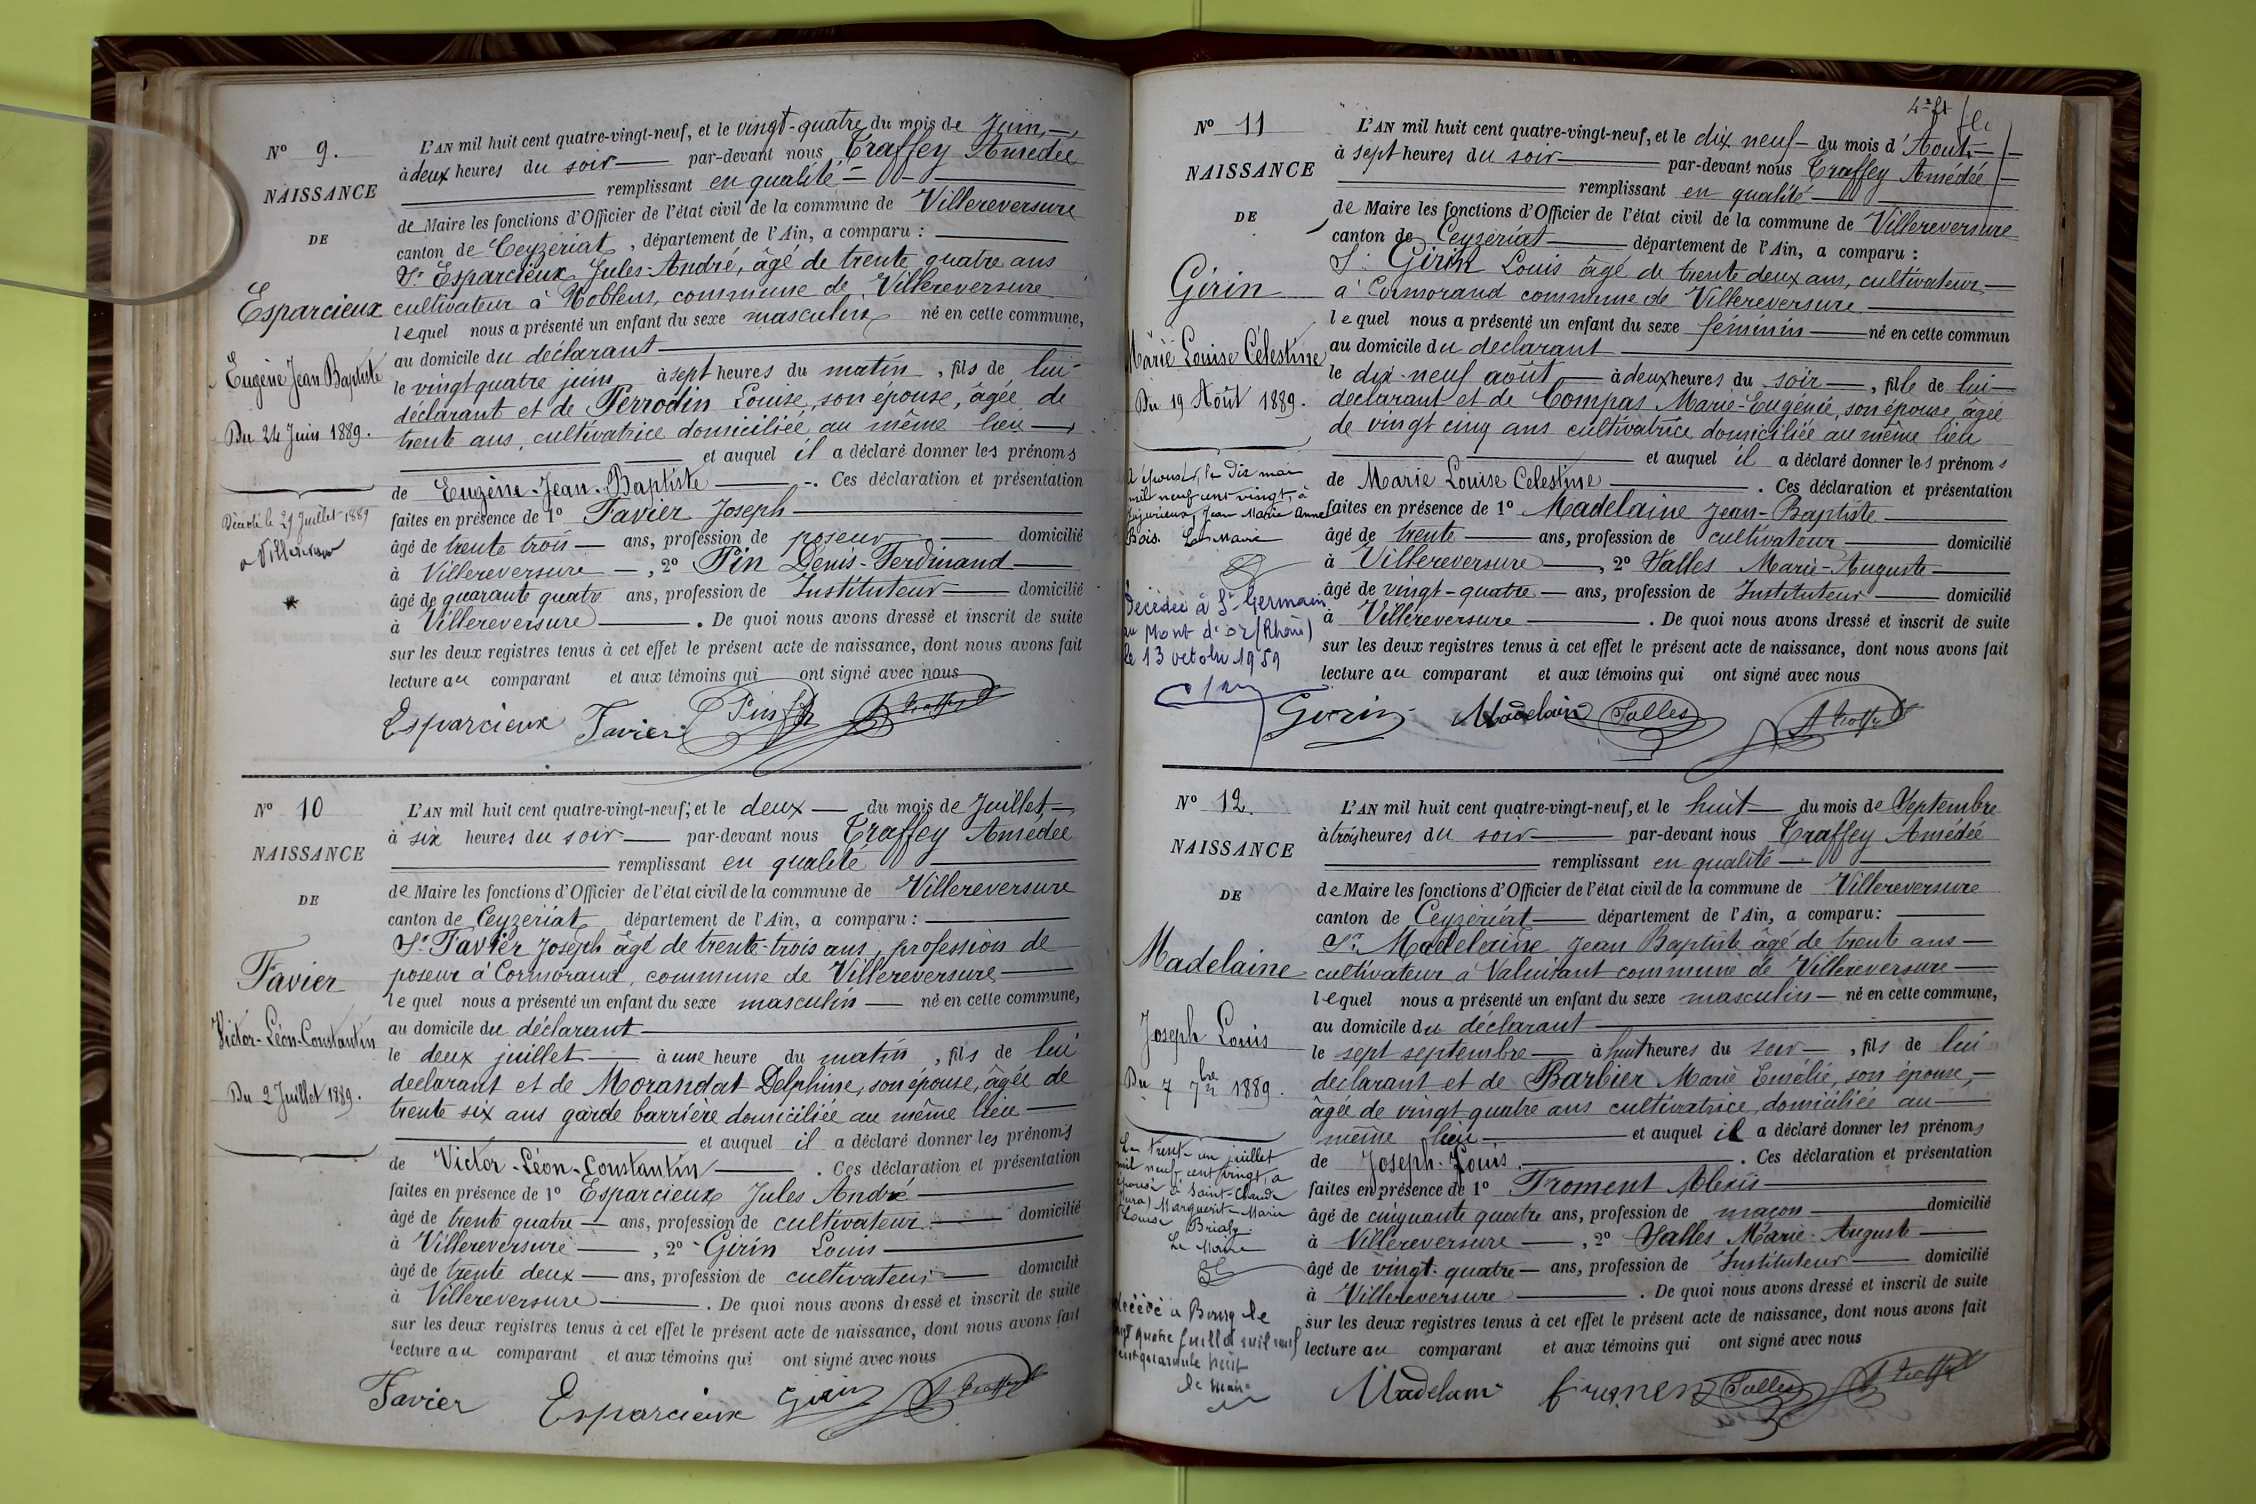 N° 9.
NAISSANCE
DE
Esparcieux
Eugène Jean Baptiste
Du 24 Juin 1889.
Décédé le 29 Juillet 1889
à Villereversure
L'AN mil huit cent quatre-vingt-neuf, et le vingt-quatre du mois de Juin,
à deux heures du soir par-devant nous Traffey Amédée
remplissant en qualité
de Maire les fonctions d'Officier de l'état civil de la commune de Villereversure
canton de Ceyzériat, département de l'Ain, a comparu :
Sr Esparcieux Jules-André, âgé de trente quatre ans
cultivateur à Noblens, commune de Villereversure
lequel nous a présenté un enfant du sexe masculin né en cette commune,
au domicile du déclarant
le vingt quatre juin à sept heures du matin, fils de lui
déclarant et de Perrodin Louise, son épouse, âgée de
trente ans, cultivatrice domiciliée au même lieu
et auquel il a déclaré donner les prénoms
de Eugène-Jean-Baptiste -. Ces déclaration et présentation
faites en présence de 1° Favier Joseph
âgé de trente trois ans, profession de poseur domicilié
à Villereversure, 2° Pin Denis-Ferdinand
âgé de quarante quatre ans, profession de Instituteur domicilié
à Villereversure. De quoi nous avons dressé et inscrit de suite
sur les deux registres tenus à cet effet le présent acte de naissance, dont nous avons fait
lecture au comparant et aux témoins qui ont signé avec nous
Esparcieux Favier Pin A Traffey
N° 10
NAISSANCE
DE
Favier
Victor-Léon-Constantin
Du 2 Juillet 1889.
L'AN mil huit cent quatre-vingt-neuf, et le deux du mois de Juillet,
à six heures du soir par-devant nous Traffey Amédée
remplissant en qualité
de Maire les fonctions d'Officier de l'état civil de la commune de Villereversure
canton de Ceyzériat département de l'Ain, a comparu :
Sr Favier Joseph âgé de trente-trois ans, profession de
poseur à Cormorand, commune de Villereversure
lequel nous a présenté un enfant du sexe masculin né en cette commune,
au domicile du déclarant
le deux juillet à une heure du matin, fils de lui
declarant et de Morandat Delphine, son épouse, âgée de
trente six ans garde barrière domiciliée au même lieu
et auquel il a déclaré donner les prénoms
de Victor-Léon-Constantin. Ces déclaration et présentation
faites en présence de 1° Esparcieux Jules André
âgé de trente quatre ans, profession de cultivateur domicilié
à Villereversure, 2° Girin Louis
âgé de trente deux ans, profession de cultivateur domicilié
à Villereversure. De quoi nous avons dressé et inscrit de suite
sur les deux registres tenus à cet effet le présent acte de naissance, dont nous avons fait
lecture au comparant et aux témoins qui ont signé avec nous
Favier Esparcieux Girin A Traffey
N° 11
NAISSANCE
DE
Girin
Marie Louise Célestine
Du 19 Août 1889.
A épousé, le dix mai
mil neuf cent vingt, à
Jujurieux, Jean Marie Anne
Bois. Le Maire
Décédée à St Germain
au Mont d'or (Rhône)
le 13 octobre 1959
L'AN mil huit cent quatre-vingt-neuf, et le dix neuf du mois d'Août
à sept heures du soir par-devant nous Traffey Amédée
remplissant en qualité
de Maire les fonctions d'Officier de l'état civil de la commune de Villereversure
canton de Ceyzériat département de l'Ain, a comparu :
Sr Girin Louis âgé de trente deux ans, cultivateur
à Cormorand commune de Villereversure
lequel nous a présenté un enfant du sexe féminin né en cette commun
au domicile du declarant
le dix-neuf août à deux heures du soir, fille de lui
declarant et de Compas Marie-Eugénie, son épouse, âgée
de vingt cinq ans cultivatrice domiciliée au même lieu
et auquel il a déclaré donner les prénoms
de Marie Louise Celestine. Ces déclaration et présentation
faites en présence de 1° Madelaine Jean-Baptiste
âgé de trente ans, profession de cultivateur domicilié
à Villereversure, 2° Salles Marie-Auguste
âgé de vingt-quatre ans, profession de Instituteur domicilié
à Villereversure. De quoi nous avons dressé et inscrit de suite
sur les deux registres tenus à cet effet le présent acte de naissance, dont nous avons fait
lecture au comparant et aux témoins qui ont signé avec nous
Girin Madelain Salles A Traffey
N° 12.
NAISSANCE
DE
Madelaine
Joseph Louis
Du 7 7bre 1889.
Le trente-un juillet
mil neuf cent vingt, a
épousé à Saint-Claude
(Jura) Marguerite-Marie
Louise Brialy.
Le Maire
décédé à Bourg le
vingt quatre juillet mil neuf
cent quarante huit
le maire
L'AN mil huit cent quatre-vingt-neuf, et le huit du mois de Septembre
à trois heures du soir par-devant nous Traffey Amédée
remplissant en qualité
de Maire les fonctions d'Officier de l'état civil de la commune de Villereversure
canton de Ceyzériat département de l'Ain, a comparu :
Sr Madelaine Jean Baptiste âgé de trente ans
cultivateur à Valuisant commune de Villereversure
lequel nous a présenté un enfant du sexe masculin né en cette commune,
au domicile du déclarant
le sept septembre à huit heures du soir, fils de lui
declarant et de Barbier Marie Emélie, son épouse,
âgée de vingt quatre ans cultivatrice, domiciliée au
même lieu et auquel il a déclaré donner les prénoms
de Joseph-Louis. Ces déclaration et présentation
faites en présence de 1° Froment Alexis
âgé de cinquante quatre ans, profession de maçon domicilié
à Villereversure, 2° Salles Marie-Auguste
âgé de vingt-quatre ans, profession de Instituteur domicilié
à Villereversure. De quoi nous avons dressé et inscrit de suite
sur les deux registres tenus à cet effet le présent acte de naissance, dont nous avons fait
lecture au comparant et aux témoins qui ont signé avec nous
Madelain Salles A Traffey